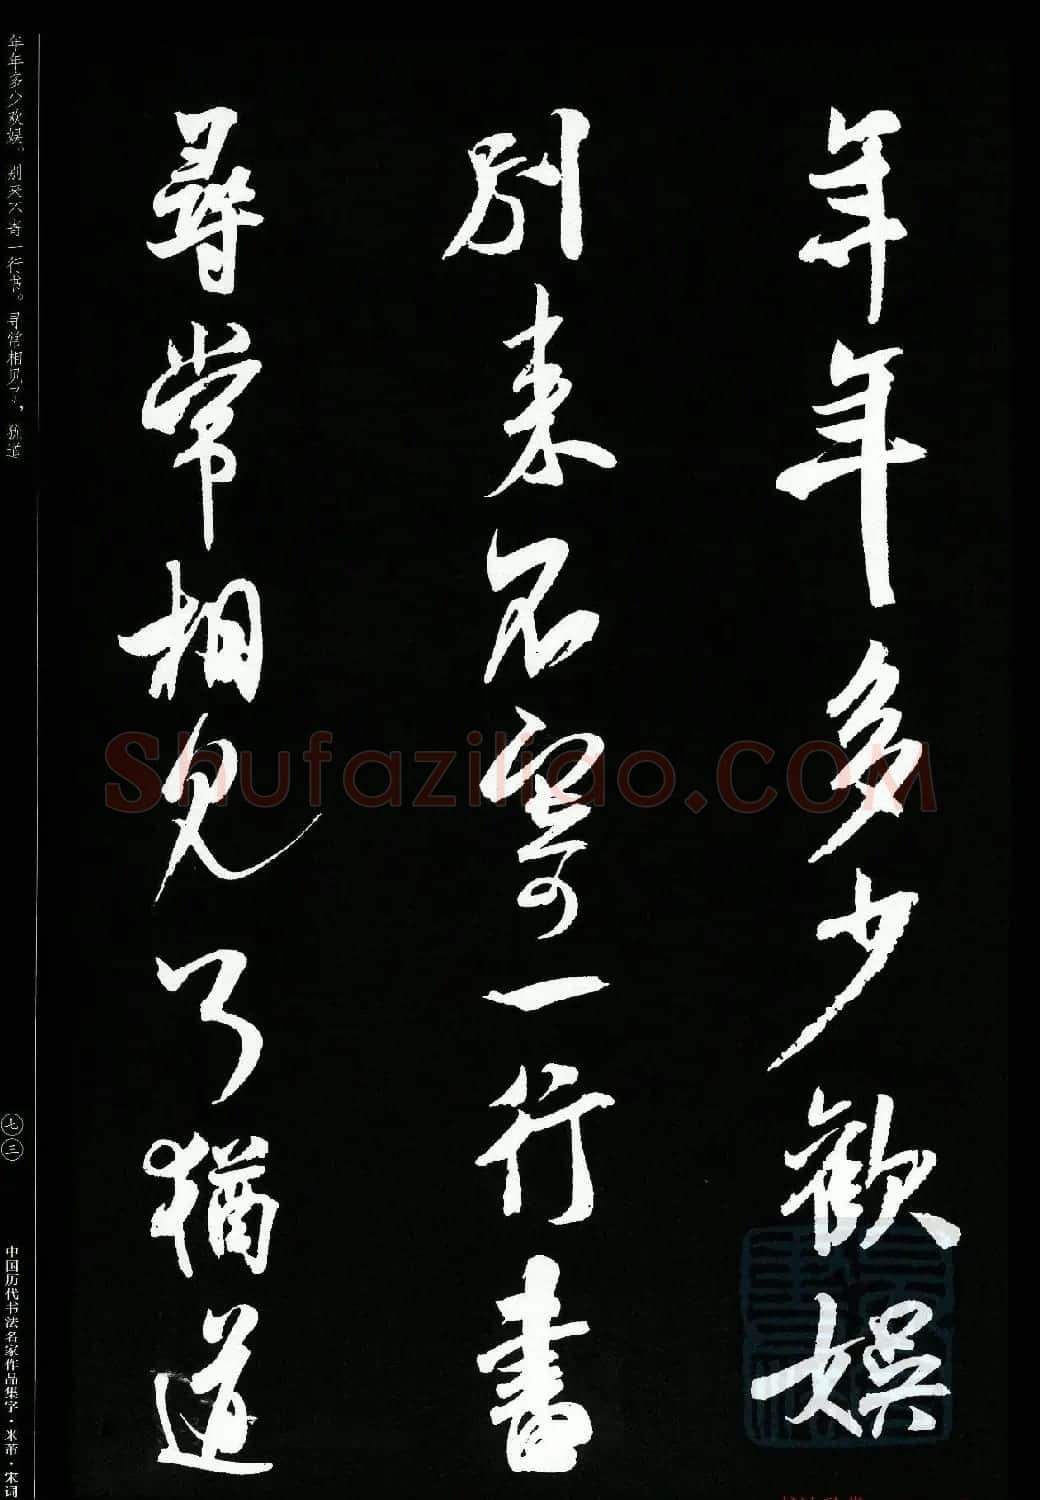 年年多少歡娱
别来不寄一行書
尋常相見了猶道
年年多少欢娱。别来不寄一行书。寻常相见了，犹道
七三
中国历代书法名家作品集字·米芾·宋词
Shufaziliao.COM